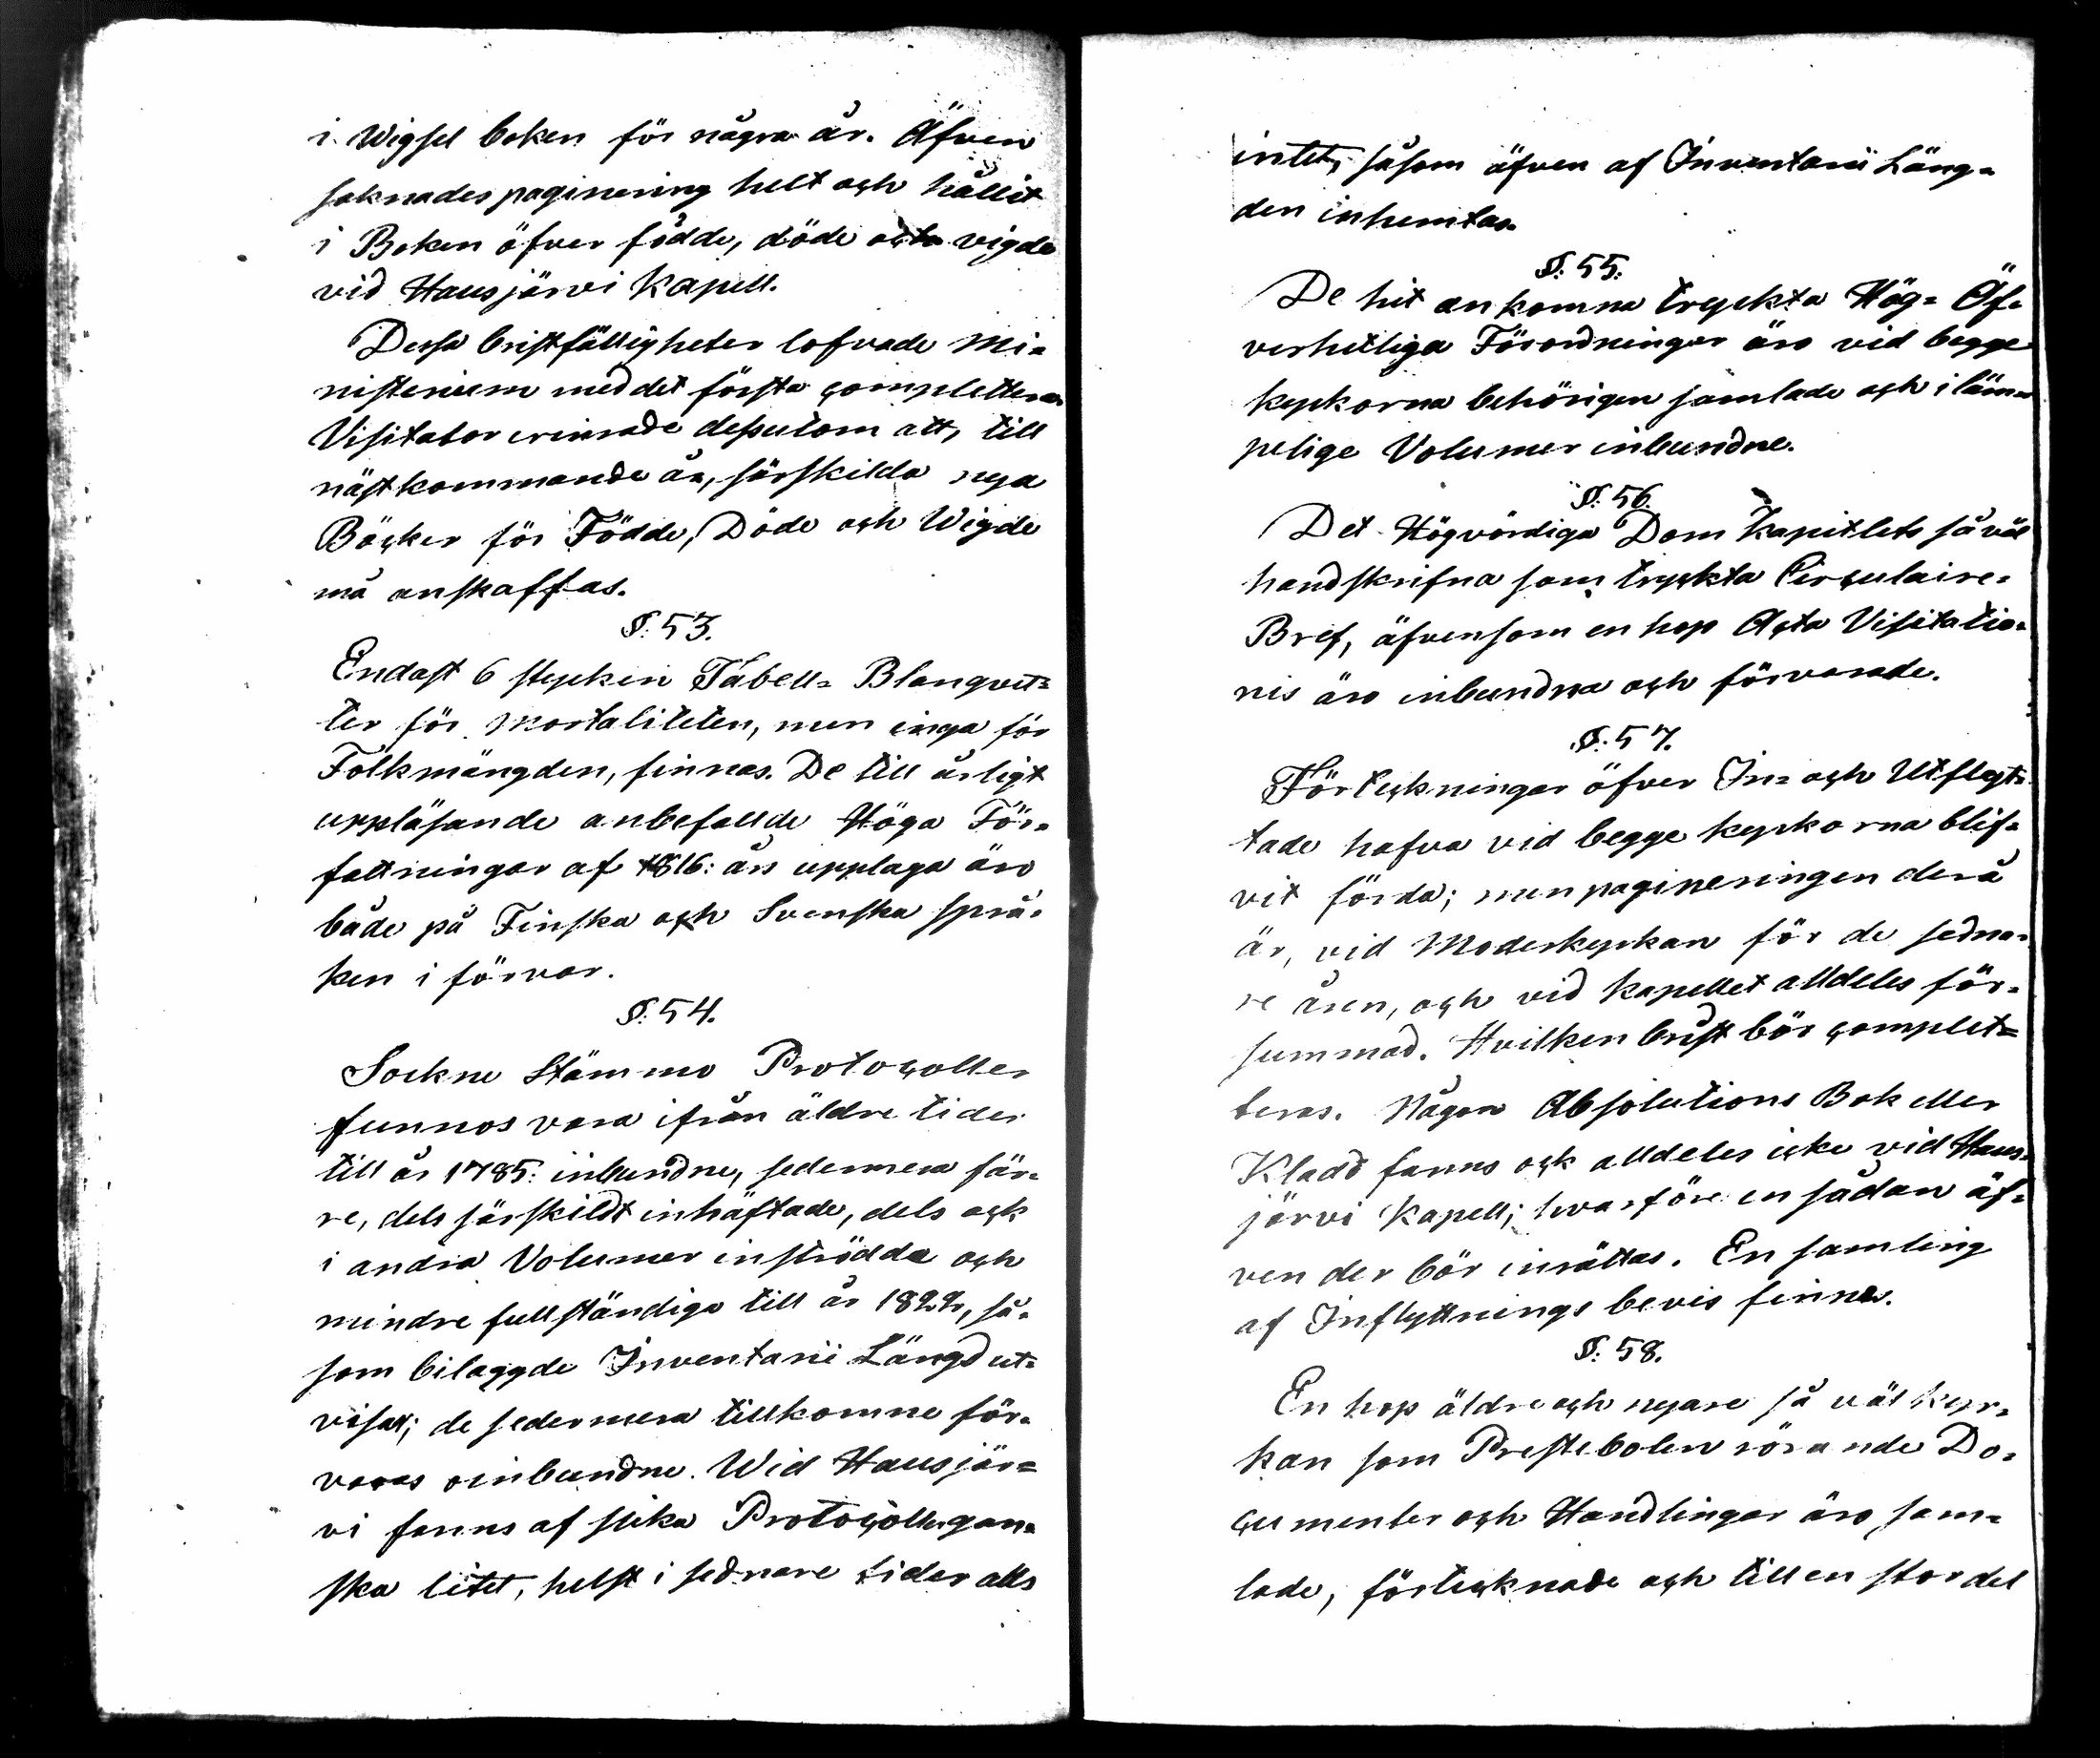 i Wigsel boken för några år. Äfven
saknades paginering helt och hållit
i Boken öfver födde, döde och vigde
vid Hausjärvi Kapell.
Dessa bristfälligheter lofvade Mi=
nisterium med det första complettera.
Visitator erinrade dessutom att, till
nästkommande år, särskilda nya
Böcker för Födde, Döde och Wigde
må anskaffas.
§: 53.
Endast 6 stycken Tabell= Blanqvet=
ter för Mortaliteten, men inga för
Folkmängden, finnas. De till årligt
uppläsande anbefallde Höga För=
fattningar af 1816: års upplaga äro
både på Finska och Svenska språ=
ken i förvar.
§: 54.
Sockne Stämmo Protocoller
funnos vara ifrån äldre tider
till år 1785: inbundne, sedermera fär=
re, dels särskildt inhäftade, dels ock
i andra Volumer inströdda och
mindre fullständiga till år 1822, så=
som bilaggde Inventarii Längd ut=
visar; de sedermera tillkomne för=
varas oinbundne. Wid Hausjär=
vi fanns af slika Protocoller gan=
ska litet, helst i sednare tider alls
intet, såsom äfven af Inventarii Läng=
den inhemtas.
§: 55:
De hit ankomna tryckta Hög= Öf=
verhetliga Förordningar äro vid begge
kyrkorna behörigen samlade och i läm=
pelige Volumer inbundne.
§: 56.
Det Högvördiga Dom Kapitlets så väl
handskrifna som tryckta Circulaire=
Bref, äfvensom en hop Acta Visitatio=
nis äro inbundna och förvarade.
§: 57.
Förteckningar öfver In= och Utflyt=
tade hafva vid begge kyrkorna blif=
vit förda; men pagineringen derå
är, vid Moderkyrkan för de sedna=
re åren, och vid Kapellet alldeles för=
summad. Hvilken brist bör complet=
teras. Någon Absolutions Bok eller
Kladd fanns ock alldeles icke vid Haus=
järvi Kapell; hvarföre en sådan äf=
ven der bör inrättas. En samling
af Inflyttnings bevis finnes.
§: 58.
En hop äldre och nyare så väl kyr=
kan som Prestebolen rörande Do=
cumenter och Handlingar äro sam=
lade, förtecknade och till en stor del